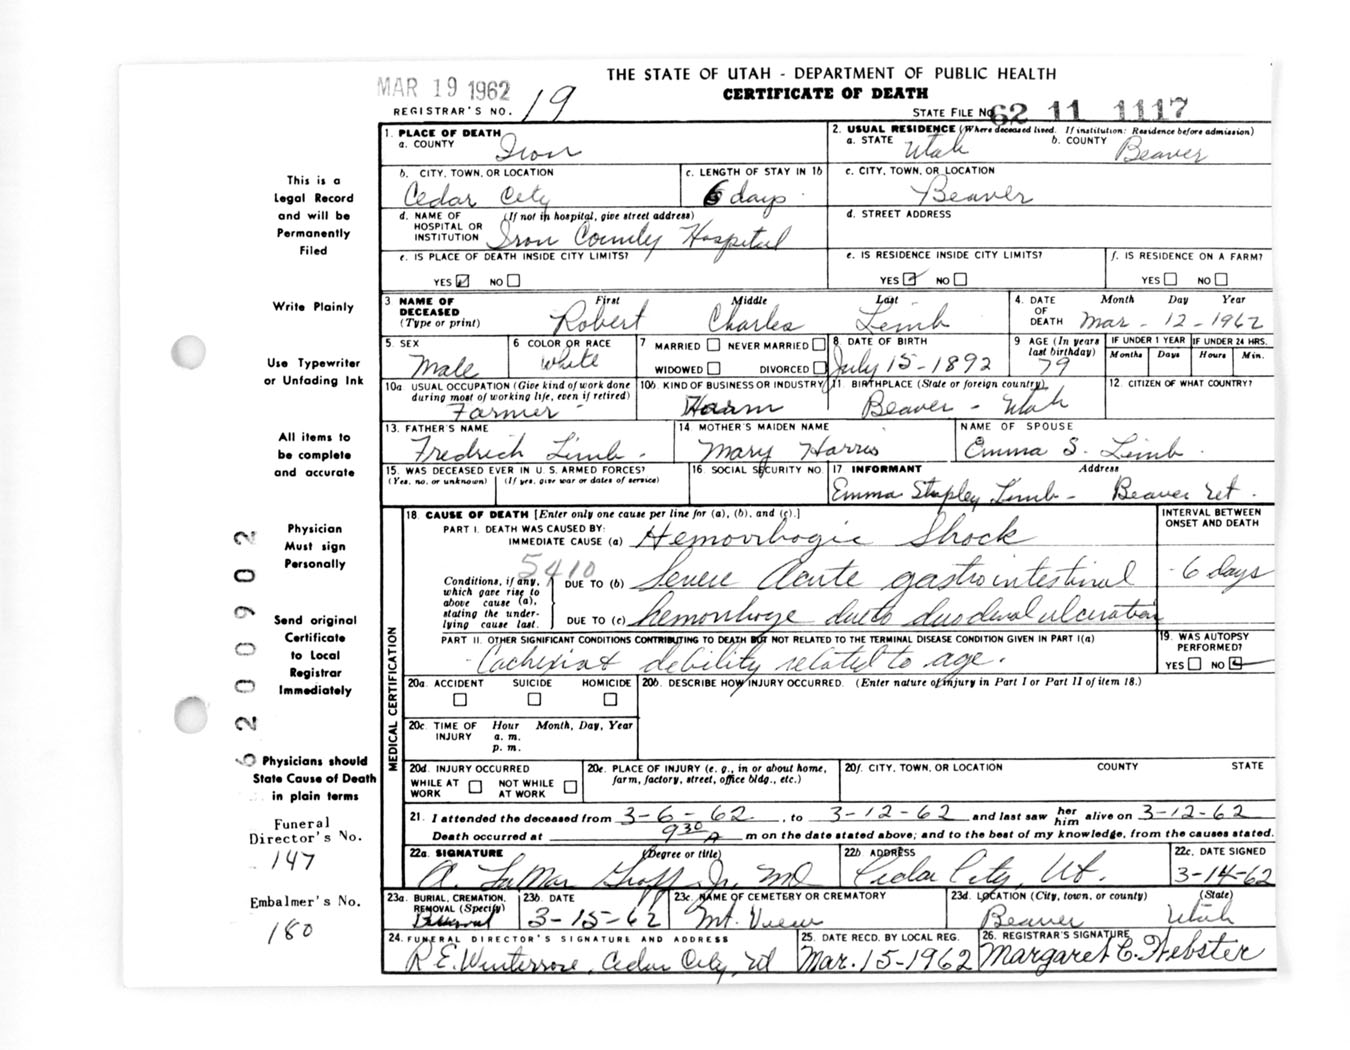 THE STATE OF UTAH - DEPARTMENT OF PUBLIC HEALTH
CERTIFICATE OF DEATH
MAR 19 1962
REGISTRAR'S NO. 19
STATE FILE NO. 62 11 1117
1. PLACE OF DEATH
a. COUNTY Iron
2. USUAL RESIDENCE (Where deceased lived. If institution: Residence before admission)
a. STATE Utah b. COUNTY Beaver
b. CITY, TOWN, OR LOCATION Cedar City
c. LENGTH OF STAY IN 1b 6 days
c. CITY, TOWN, OR LOCATION Beaver
d. NAME OF HOSPITAL OR INSTITUTION (If not in hospital, give street address) Iron County Hospital
d. STREET ADDRESS
e. IS PLACE OF DEATH INSIDE CITY LIMITS?
YES NO
e. IS RESIDENCE INSIDE CITY LIMITS?
YES NO
f. IS RESIDENCE ON A FARM?
YES NO
3 NAME OF DECEASED (Type or print)
First Middle Last
Robert Charles Limb
4. DATE OF DEATH Month Day Year
Mar - 12 - 1962
5. SEX Male
6 COLOR OR RACE White
7 MARRIED NEVER MARRIED
WIDOWED DIVORCED
8. DATE OF BIRTH July 15-1892
9 AGE (In years last birthday) 79
IF UNDER 1 YEAR Months Days
IF UNDER 24 HRS. Hours Min.
10a USUAL OCCUPATION (Give kind of work done during most of working life, even if retired) Farmer -
10b. KIND OF BUSINESS OR INDUSTRY Farm
11. BIRTHPLACE (State or foreign country) Beaver - Utah
12. CITIZEN OF WHAT COUNTRY?
13. FATHER'S NAME Fredrich Limb -
14. MOTHER'S MAIDEN NAME Mary Harris
NAME OF SPOUSE Emma S. Limb
15. WAS DECEASED EVER IN U. S. ARMED FORCES?
(Yes, no, or unknown) (If yes, give war or dates of service)
16. SOCIAL SECURITY NO.
17 INFORMANT Address
Emma Stapley Limb - Beaver Ut.
MEDICAL CERTIFICATION
18. CAUSE OF DEATH [Enter only one cause per line for (a), (b), and (c).]
INTERVAL BETWEEN ONSET AND DEATH
PART I. DEATH WAS CAUSED BY:
IMMEDIATE CAUSE (a) Hemorrhagic Shock
5410
Conditions, if any, which gave rise to above cause (a), stating the underlying cause last.
DUE TO (b) Severe Acute gastrointestinal - 6 days
DUE TO (c) hemorrhage due to duodenal ulceration
PART II. OTHER SIGNIFICANT CONDITIONS CONTRIBUTING TO DEATH BUT NOT RELATED TO THE TERMINAL DISEASE CONDITION GIVEN IN PART I(a)
- Cachexia & debility related to age.
19. WAS AUTOPSY PERFORMED?
YES NO
20a. ACCIDENT SUICIDE HOMICIDE
20b. DESCRIBE HOW INJURY OCCURRED. (Enter nature of injury in Part I or Part II of item 18.)
20c. TIME OF INJURY Hour Month, Day, Year
a. m.
p. m.
20d. INJURY OCCURRED
WHILE AT WORK NOT WHILE AT WORK
20e. PLACE OF INJURY (e. g., in or about home, farm, factory, street, office bldg., etc.)
20f. CITY, TOWN, OR LOCATION COUNTY STATE
21. I attended the deceased from 3-6-62, to 3-12-62 and last saw her him alive on 3-12-62
Death occurred at 9 30 A m on the date stated above; and to the best of my knowledge, from the causes stated.
22a. SIGNATURE (Degree or title) A. LaMar Graff Jr. MD
22b. ADDRESS Cedar City, Ut.
22c. DATE SIGNED 3-14-62
23a. BURIAL, CREMATION, REMOVAL (Specify)
23b. DATE 3-15-62
23c. NAME OF CEMETERY OR CREMATORY Mt. View
23d. LOCATION (City, town, or county) (State)
Beaver Utah
24. FUNERAL DIRECTOR'S SIGNATURE AND ADDRESS
R E. Winterrose, Cedar City, Ut
25. DATE RECD. BY LOCAL REG. Mar. 15-1962
26. REGISTRAR'S SIGNATURE Margaret C. Webster
This is a
Legal Record
and will be
Permanently
Filed
Write Plainly
Use Typewriter
or Unfading Ink
All items to
be complete
and accurate
Physician
Must sign
Personally
Send original
Certificate
to Local
Registrar
Immediately
Physicians should
State Cause of Death
in plain terms
Funeral
Director's No.
147
Embalmer's No.
180
6200902